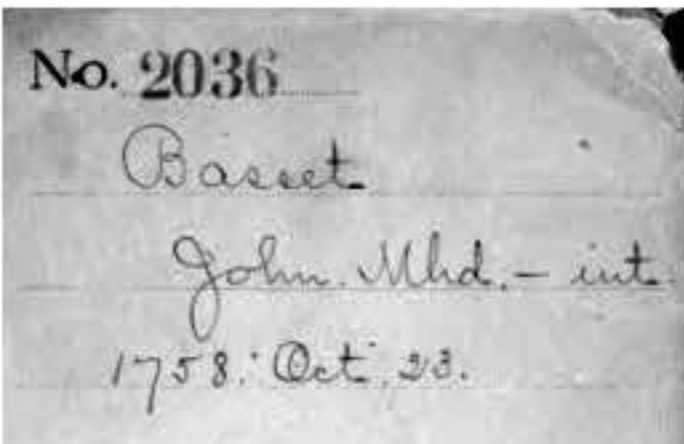 No. 2036
Basset
John. Mhd. - int.
1758. Oct. 23.